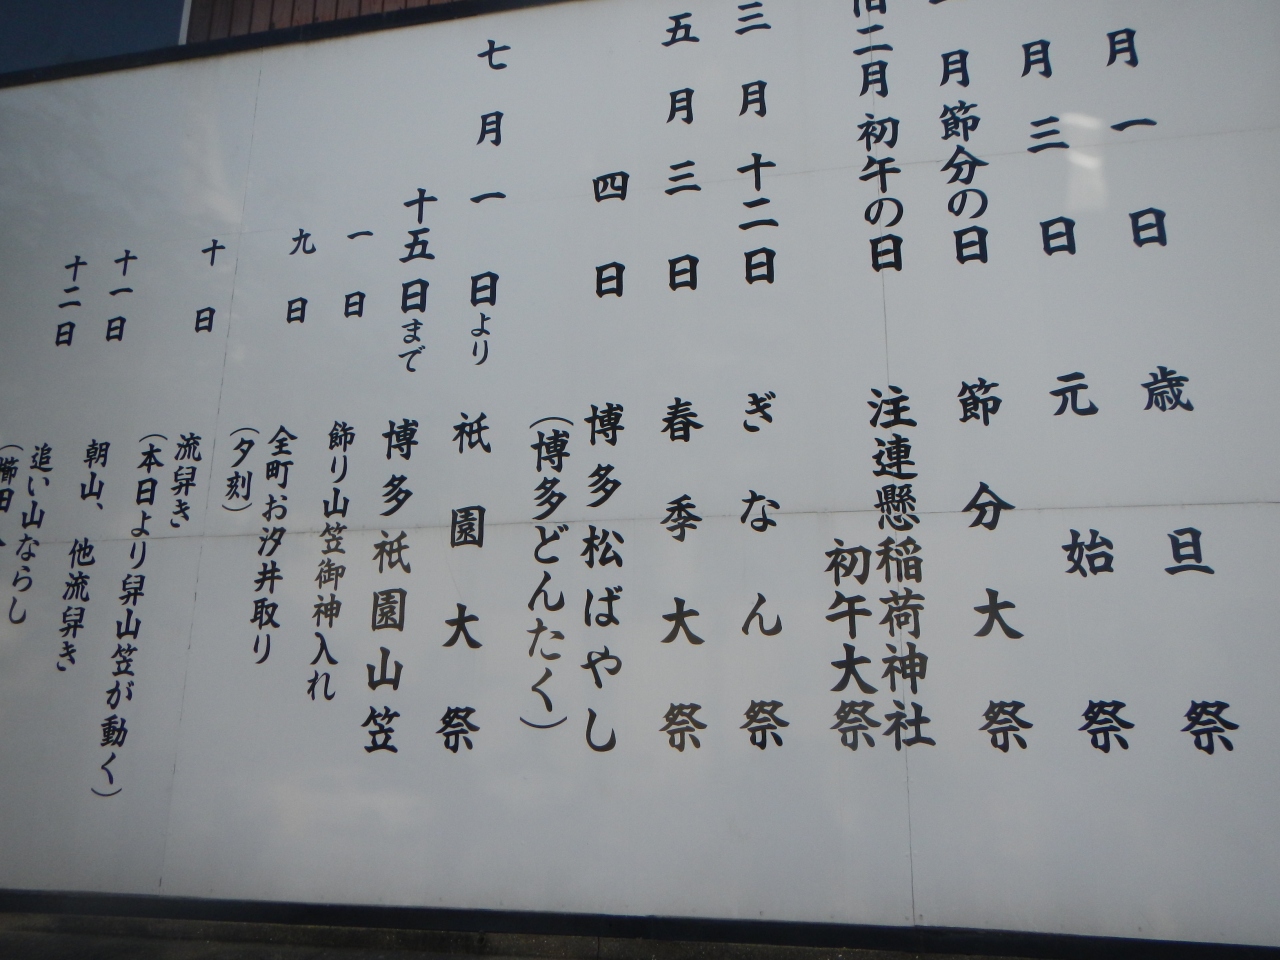 月一日 歳旦祭
月三日 元始祭
月節分の日 節分大祭
旧二月初午の日 注連懸稲荷神社
初午大祭
三月十二日 ぎなん祭
五月三日 春季大祭
四日 博多松ばやし
(博多どんたく)
七月一日より 祇園大祭
十五日まで 博多祇園山笠
一日 飾り山笠御神入れ
九日 全町お汐井取り
(夕刻)
十日 流舁き
(本日より舁山笠が動く)
十一日 朝山、他流舁き
十二日 追い山ならし
(櫛田